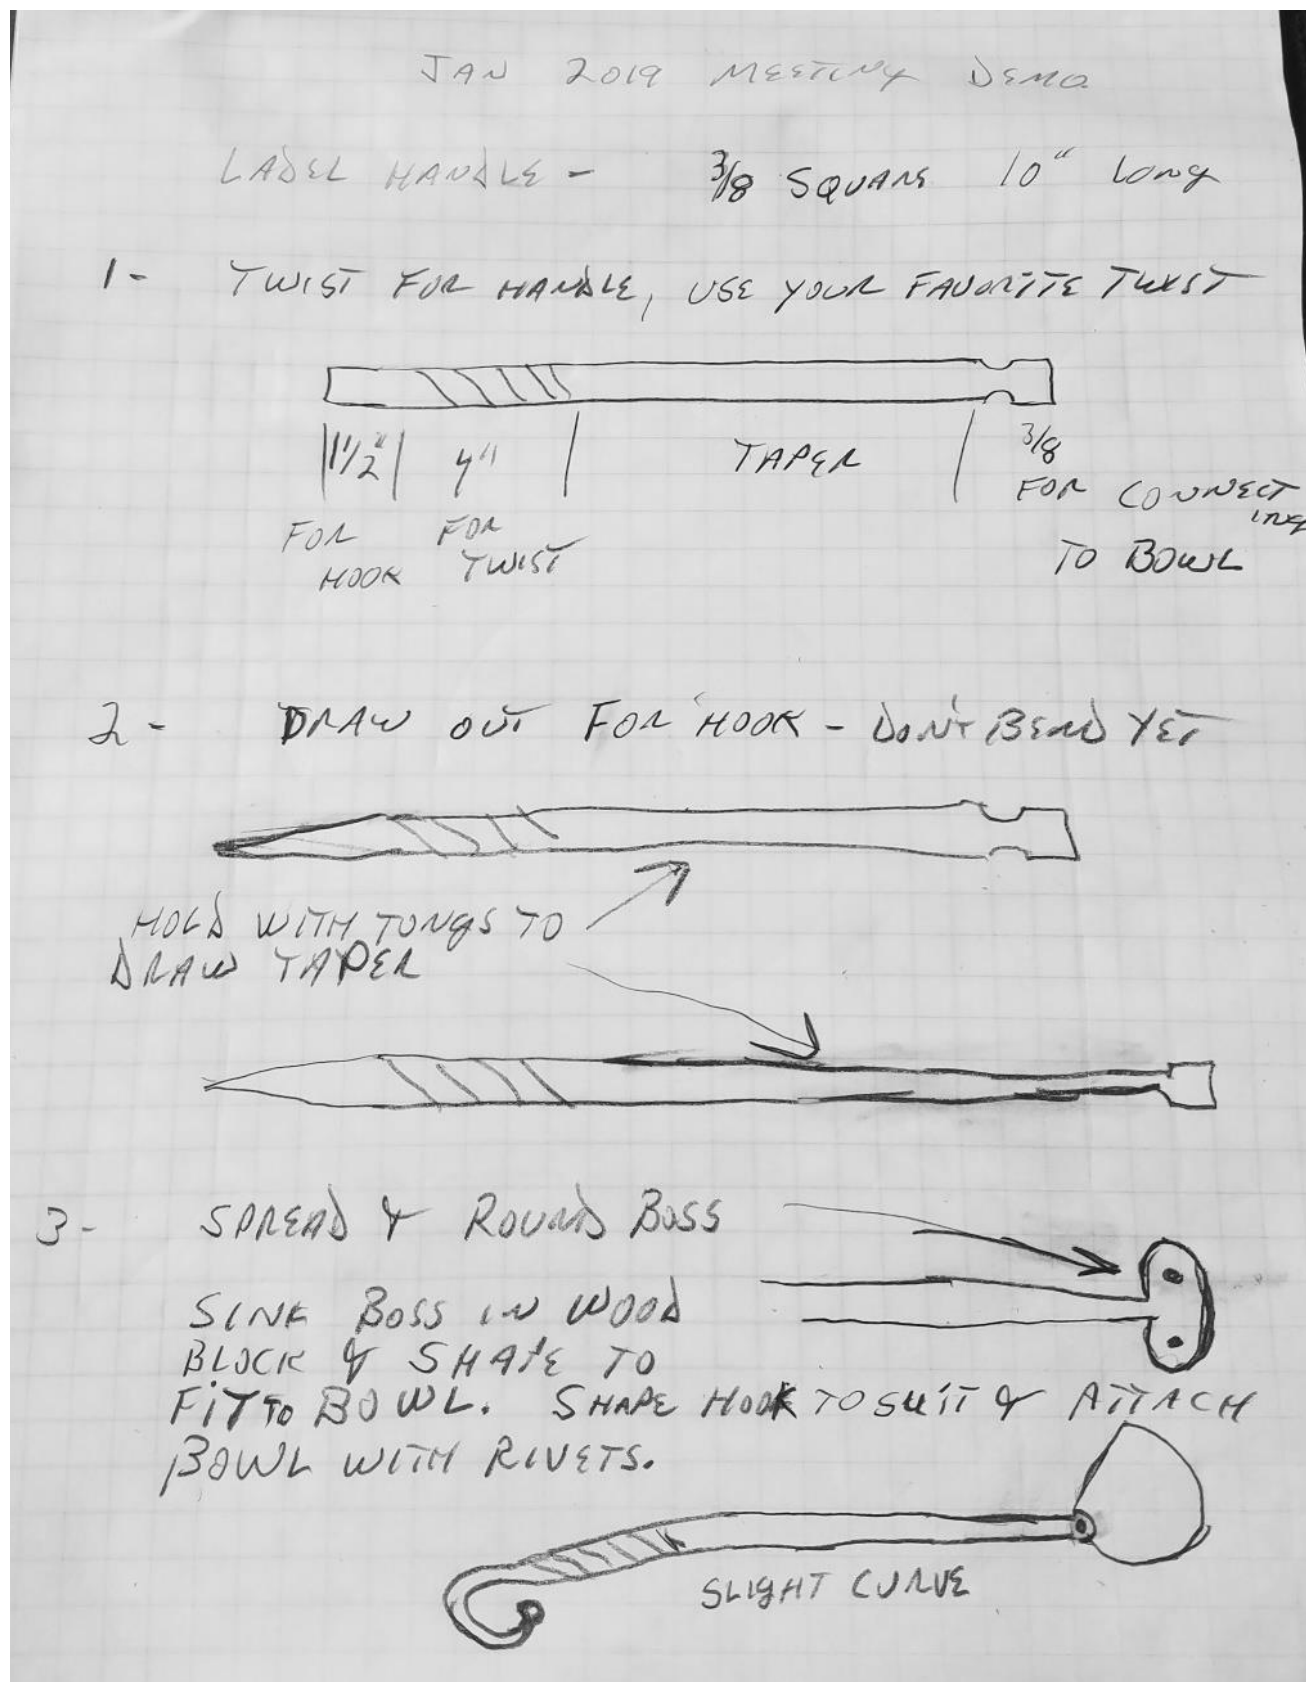 JAN 2019 MEETING DEMO
LADEL HANDLE - 3/8 SQUARE 10" LONG
1- TWIST FOR HANDLE, USE YOUR FAVORITE TWIST
1 1/2" 4" TAPER 3/8
FOR CONNECT
ING
FOR FOR
HOOK TWIST
TO BOWL
2- DRAW OUT FOR HOOK - DON'T BEND YET
HOLD WITH TONGS TO
DRAW TAPER
3- SPREAD & ROUND BOSS
SINK BOSS IN WOOD
BLOCK & SHAPE TO
FIT TO BOWL. SHAPE HOOK TO SUIT & ATTACH
BOWL WITH RIVETS.
SLIGHT CURVE